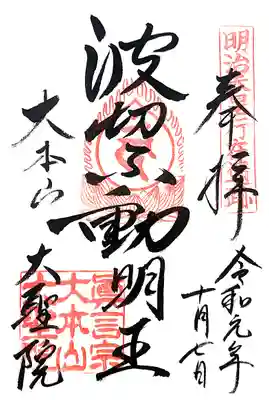 明治天皇行在所跡
奉拝
令和元年
十月七日
波切不動明王
大本山
大聖院
眞言宗
大本山